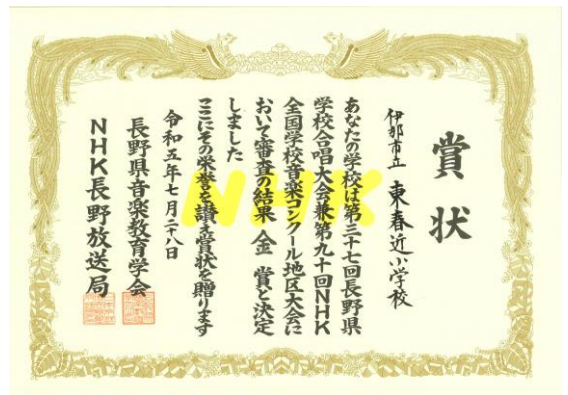 賞状
伊那市立 東春近小学校
あなたの学校は第三十七回長野県
学校合唱大会兼第九十回NHK
全国学校音楽コンクール地区大会に
おいて審査の結果 金 賞と決定
しました
ここにその栄誉を讃え賞状を贈ります
令和五年七月二十八日
長野県音楽教育学会
NHK長野放送局
NHK